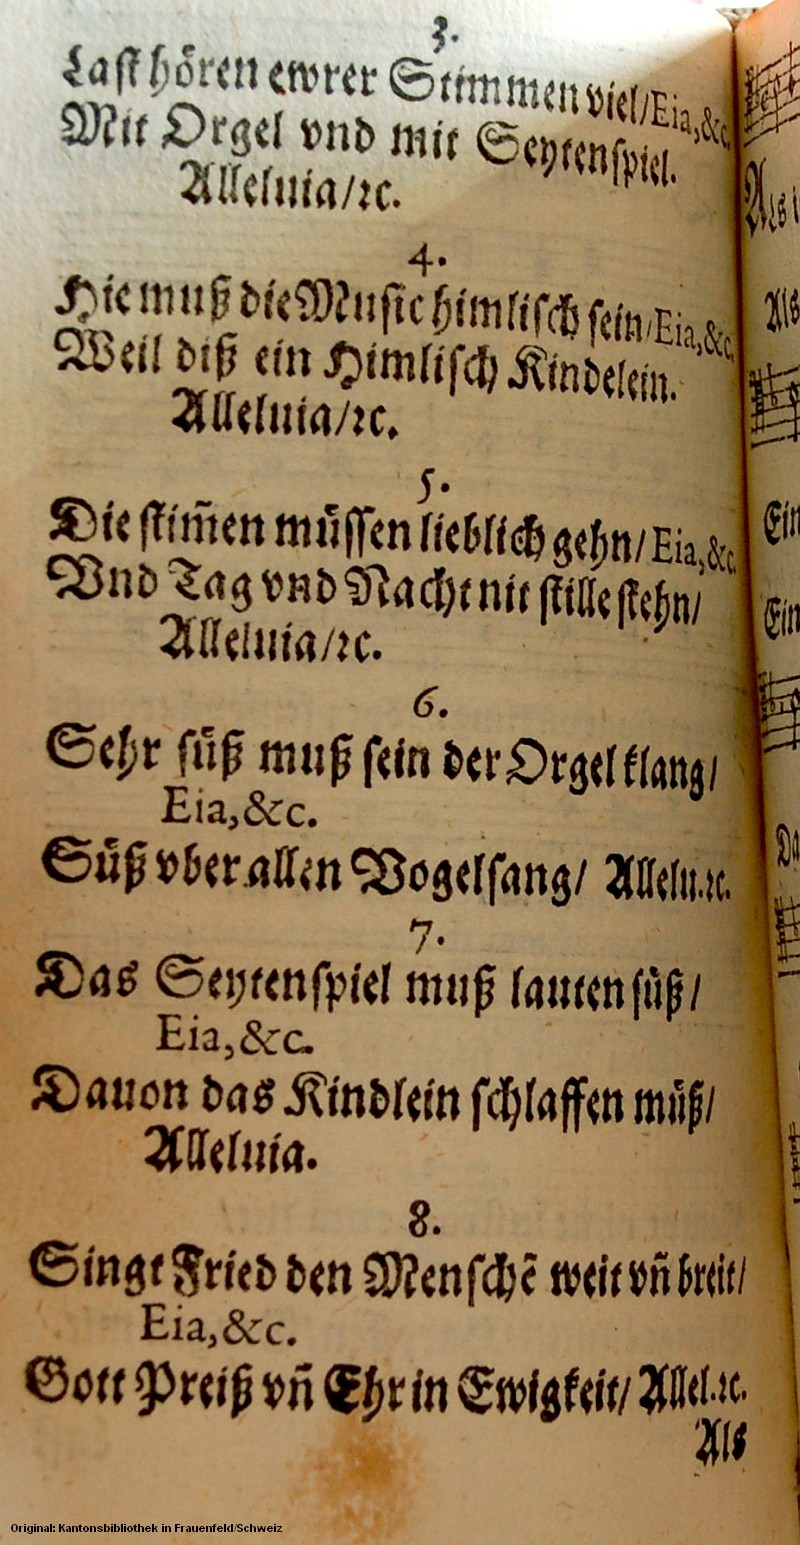 3.
Last hören ewrer Stimmen viel/ Eia, &c.
Mit Orgel vnd mit Seytenspiel.
Alleluia/ ꝛc.
4.
Hie muß die Music himlisch sein/ Eia, &c.
Weil diß ein Himlisch Kindelein.
Alleluia/ ꝛc.
5.
Die stim̃en müssen lieblich gehn/ Eia, &c.
Vnd Tag vnd Nacht nit stille stehn/
Alleluia/ ꝛc.
6.
Sehr süß muß sein der Orgel klang/
Eia, &c.
Süß vber allen Vogelsang/ Allelu. ꝛc.
7.
Das Seytenspiel muß lauten süß/
Eia, &c.
Dauon das Kindlein schlaffen müß/
Alleluia.
8.
Singt Fried den Menschẽ weit vñ breit/
Eia, &c.
Gott Preiß vñ Ehr in Ewigkeit/ Allel. ꝛc.
Als
Als
Ein
Ein
Da
Original: Kantonsbibliothek in Frauenfeld/Schweiz